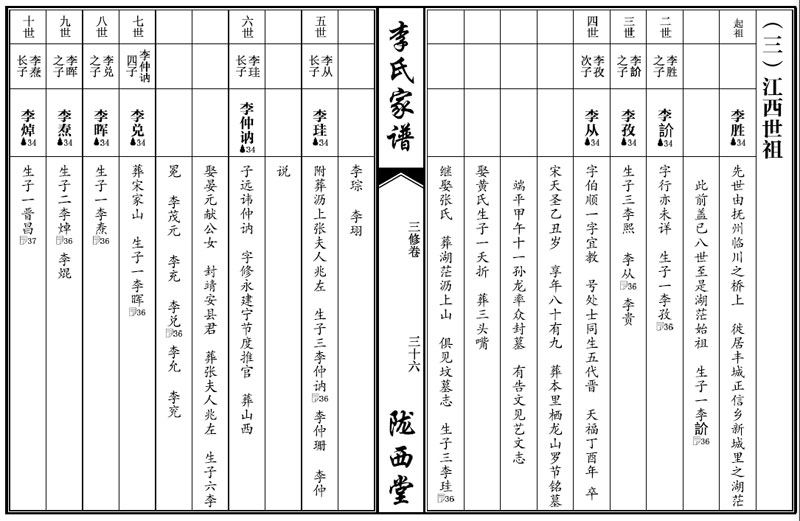 （三）江西世祖
起祖
李胜34
先世由抚州临川之桥上 徙居丰城正信乡新城里之湖茫
此前盖已八世至是湖茫始祖 生子一李36
二世
李胜之子
李34
字行亦未详 生子一李孜36
三世
李之子
李孜34
生子三李熙 李从36 李贵
四世
李孜次子
李从34
字伯顺一字宜教 号处士同生五代晋 天福丁酉年 卒
宋天圣乙丑岁 享年八十有九 葬本里栖龙山罗节铭墓
端平甲午十一孙龙率众封墓 有告文见艺文志
娶黄氏生子一天折 葬三头嘴
继娶张氏 葬湖茫沥上山 俱见坟墓志 生子三李珪36
李氏家谱
三修卷
三十六
陇西堂
李琮 李珝
五世
李从长子
李珪34
附葬沥上张夫人兆左 生子三李仲讷36 李仲珊 李仲
说
六世
李珪长子
李仲讷34
子远讳仲讷 字修永建宁节度推官 葬山西
娶晏元献公女 封靖安县君 葬张夫人兆左 生子六李
冕 李茂元 李充 李兑36 李允 李兖
七世
李仲讷四子
李兑34
葬宋家山 生子一李晖36
八世
李兑之子
李晖34
生子一李焘36
九世
李晖之子
李焘34
生子二李焯36 李焜
十世
李焘长子
李焯34
生子一晋昌37